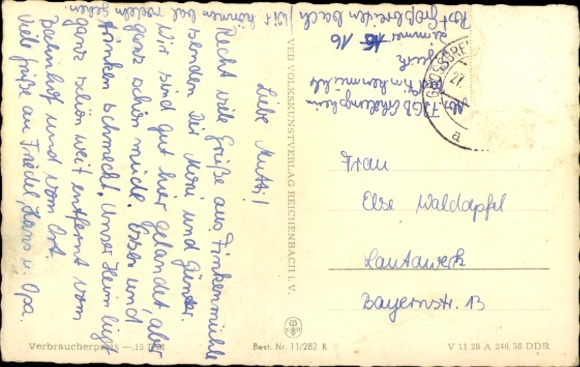 Liebe Mutti!
Recht viele Grüße aus Finkenmühle
senden Dir Moni und Günter.
Wir sind gut hier gelandet, aber
ganz schön müde. Essen und
trinken schmeckt. Unser Heim liegt
ganz schön weit entfernt vom
Bahnhof und vom Ort.
Viele Grüße an Friedel, Hans u. Opa.
Wir können bald rodeln gehen.
FDGB Erholungsheim
Finkenmühle
Zimmer 16
Post Großbreitenbach
VEB VOLKSKUNSTVERLAG REICHENBACH i. V.
GROSSBREI
27.
a
Frau
Else Waldapfel
Lautawerk
Bayernstr. 13
Verbraucherpreis —,15 DM
Best. Nr. 11/282 K
V 11 28 A 246 58 DDR